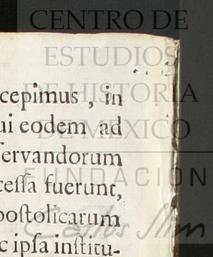 CENTRO DE
ESTUDIOS
DE HISTORIA
DE MÉXICO
FUNDACIÓN
Carlos Slim
cepimus, in
ui eodem ad
ſervandorum
ceſſa fuerunt,
poſtolicarum
c ipſa inſtitu-